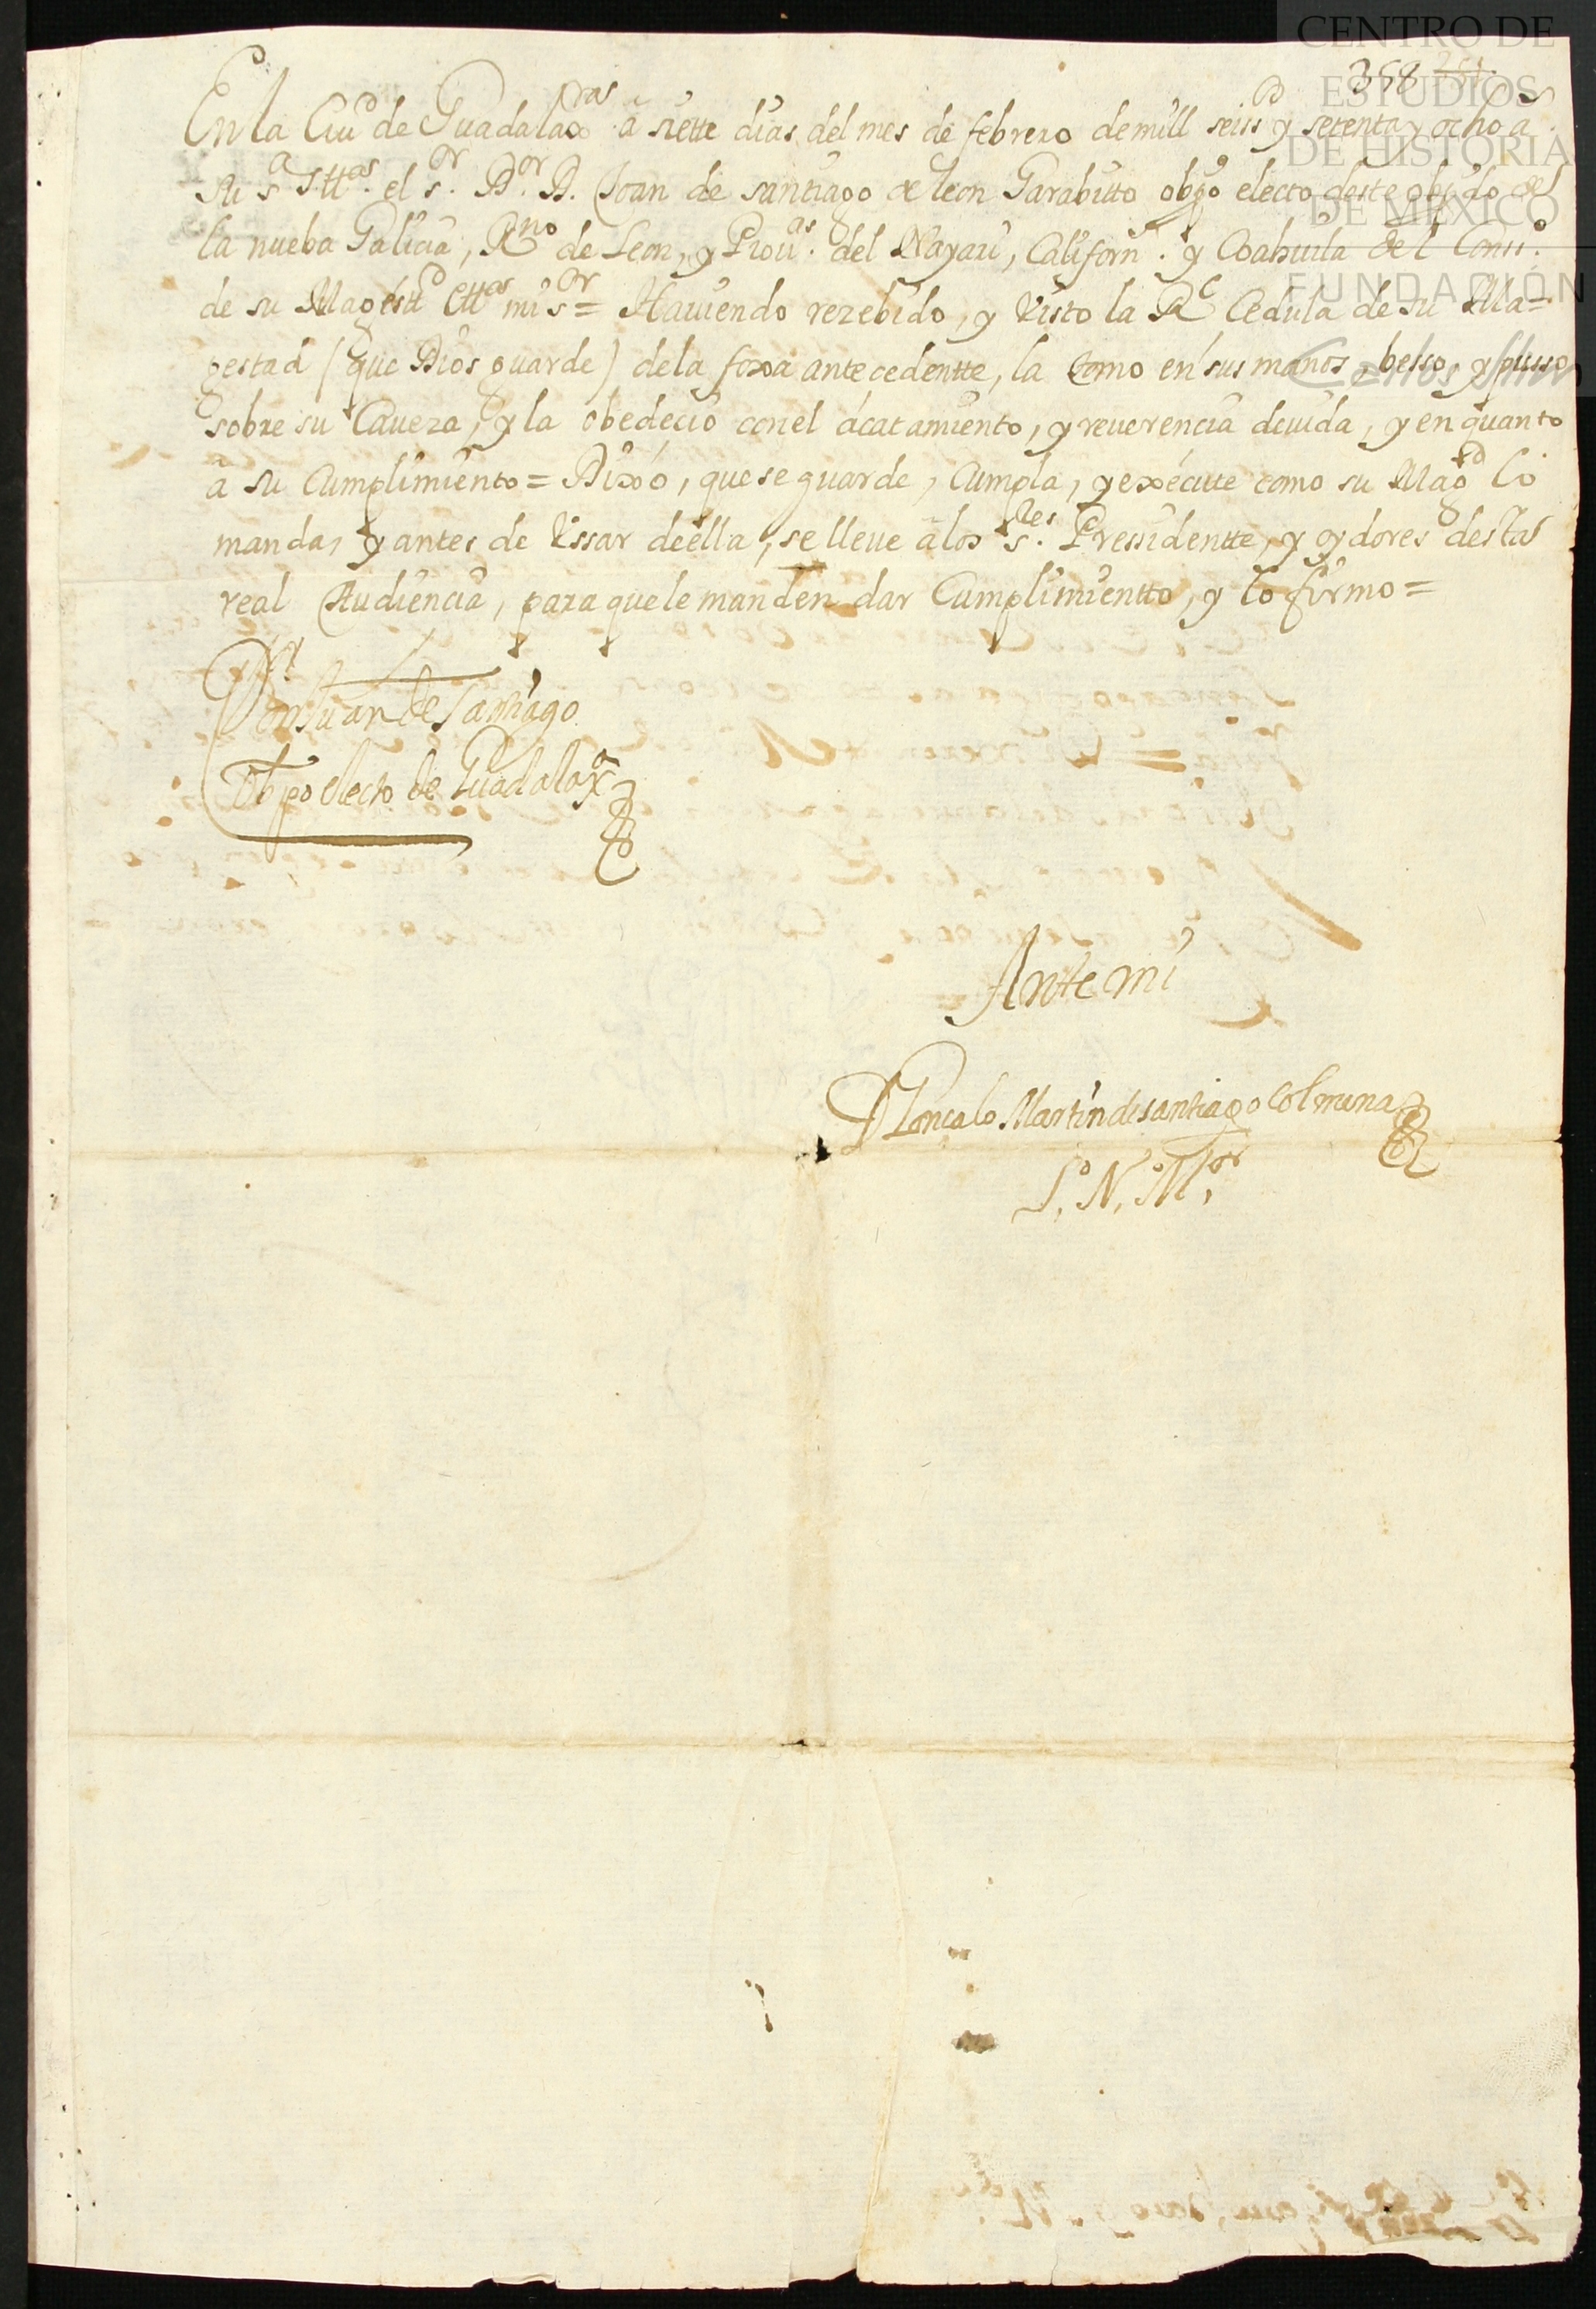 CENTRO DE
ESTUDIOS
DE HISTORIA
DE MÉXICO
FUNDACIÓN
Carlos Slim
358
En la Ciud de Guadalaxra a siette dias del mes de febrero de mill seiss y setenta y ocho as
Su sa Ittas. el sor. Dor. D. Joan de santiago de leon Garabitto obpo electo deste obpdo del
la nueba Galicia, Rno de Leon, y Prouas. del Nayari, Californs. y Coahuila del Conso.
de su Magestd ettas mi sor = Hauiendo rezebido, y visto la Rl Cedula de su Ma-
gestad (que Dios guarde) de la foxa antecedentte, la tomo en sus manos, besso, y pusso
sobre su Caueza, y la obedecio con el acatamiento, y reuerencia deuida, y en quanto
a su Cumplimiento = Dixo, que se guarde, Cumpla, y execute como su Magd lo
manda, y antes de Vssar de ella, se lleue a los sres. Pressidentte, y oydores desta
real Audiencia, para que le manden dar Cumplimientto, y lo firmo =
Don Juan de Santiago
Obpo electo de Guadalaxa
Ante mi
D Goncalo Martin de santiago Colmena
So. No. Mor.